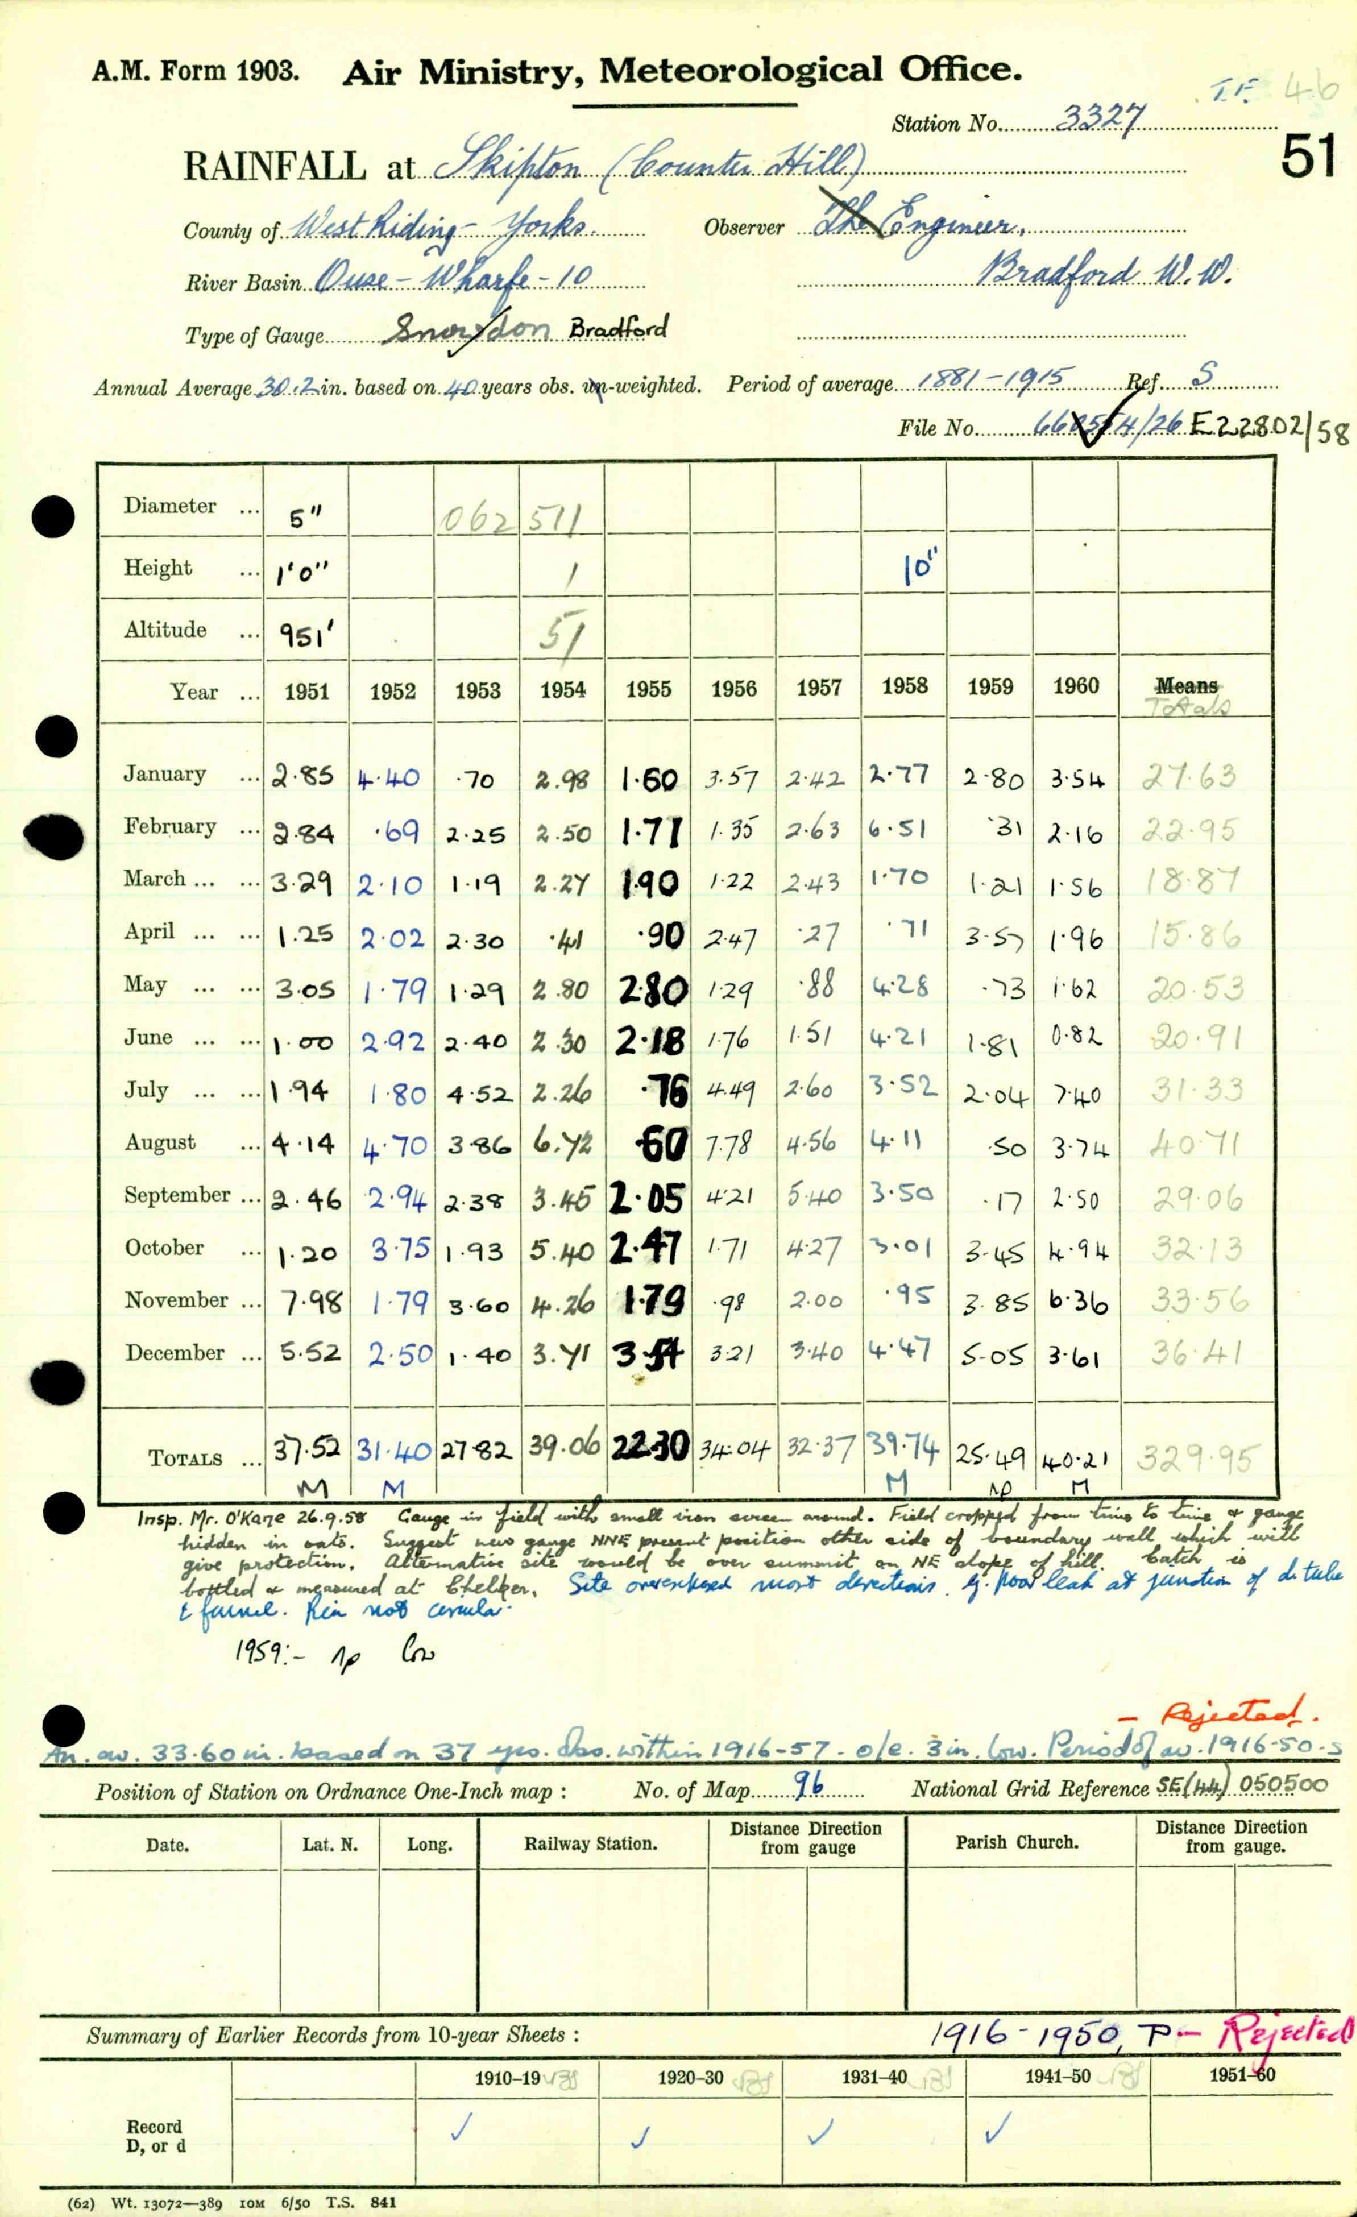 T.F. 46
A.M. Form 1903. Air Ministry, Meteorological Office.
Station No. 3327
51
RAINFALL at Skipton (Counter Hill)
County of West Riding - Yorks. Observer The Engineer,
River Basin Ouse - Wharfe - 10 Bradford W.W.
Type of Gauge Snowdon Bradford
Annual Average 30.2 in. based on 40 years obs. un-weighted. Period of average 1881-1915 Ref. S
File No. E22802/58
Diameter ... 5" 062 511
Height ... 1'0" 1 10"
Altitude ... 951' 51
Year ... 1951 1952 1953 1954 1955 1956 1957 1958 1959 1960 Means
Totals
January ... 2.85 4.40 .70 2.98 1.60 3.57 2.42 2.77 2.80 3.54 27.63
February ... 2.84 .69 2.25 2.50 1.71 1.35 2.63 6.51 .31 2.16 22.95
March ... ... 3.29 2.10 1.19 2.27 1.90 1.22 2.43 1.70 1.21 1.56 18.87
April ... ... 1.25 2.02 2.30 .41 .90 2.47 .27 .71 3.57 1.96 15.86
May ... ... 3.05 1.79 1.29 2.80 2.80 1.29 .88 4.28 .73 1.62 20.53
June ... ... 1.00 2.92 2.40 2.30 2.18 1.76 1.51 4.21 1.81 0.82 20.91
July ... ... 1.94 1.80 4.52 2.26 .76 4.49 2.60 3.52 2.04 7.40 31.33
August ... 4.14 4.70 3.86 6.72 .60 7.78 4.56 4.11 .50 3.74 40.71
September ... 2.46 2.94 2.38 3.45 2.05 4.21 5.40 3.50 .17 2.50 29.06
October ... 1.20 3.75 1.93 5.40 2.47 1.71 4.27 3.01 3.45 4.94 32.13
November ... 7.98 1.79 3.60 4.26 1.79 .98 2.00 .95 3.85 6.36 33.56
December ... 5.52 2.50 1.40 3.71 3.54 3.21 3.40 4.47 5.05 3.61 36.41
TOTALS ... 37.52 31.40 27.82 39.06 22.30 34.04 32.37 39.74 25.49 40.21 329.95
M M M np M
Insp. Mr. O'Kane 26.9.58 Gauge in field with small iron screen around. Field cropped from time to time & gauge
hidden in oats. Suggest new gauge NNE present position other side of boundary wall which will
give protection. Alternative site would be over summit on NE slope of hill. Catch is
bottled & measured at Chelker. Site overexposed most directions. leak at junction of tube
& funnel. Rim not circular.
1959:- np low
- Rejected.
An. av. 33.60 in. based on 37 yrs. obs. within 1916-57 - o/e. 3in. low. Period of av. 1916-50 - S
Position of Station on Ordnance One-Inch map : No. of Map 96 National Grid Reference SE(44) 050500
Date. Lat. N. Long. Railway Station. Distance Direction from gauge Parish Church. Distance Direction from gauge.
Summary of Earlier Records from 10-year Sheets : 1916-1950, P - Rejected
1910-19 1920-30 1931-40 1941-50 1951-60
Record
D, or d ✓ ✓ ✓ ✓
(62) Wt. 13072—389 10M 6/50 T.S. 841